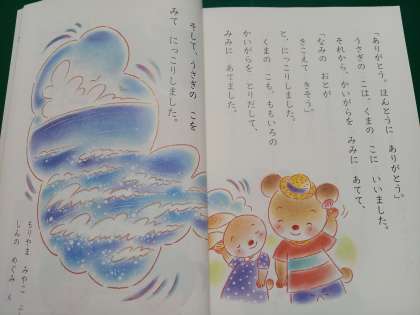 「ありがとう。ほんとうに ありがとう」
うさぎの こは、くまの こに いいました。
それから、かいがらを みみに あてて、
「なみの おとが
きこえて きそう」
と、にっこりしました。
くまの こも、ももいろの
かいがらを とりだして、
みみに あてました。
そして、うさぎの こを
みて にっこりしました。
もりやま みやこ
しんの めぐみ え